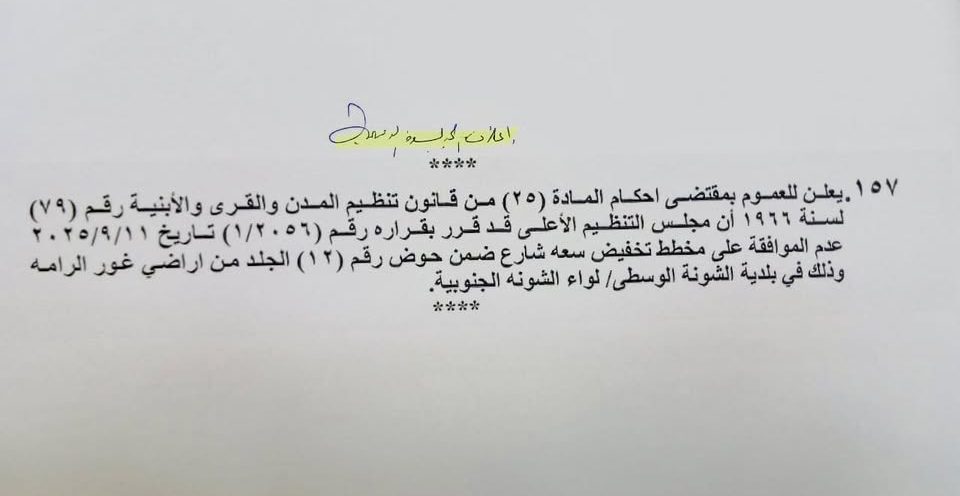 ****
١٥٧. يعلن للعموم بمقتضى احكام المادة (٢٥) من قانون تنظيم المدن والقرى والأبنية رقم (٧٩)
لسنة ١٩٦٦ أن مجلس التنظيم الأعلى قد قرر بقراره رقم (١/٢٠٥٦) تاريخ ٢٠٢٥/٩/١١
عدم الموافقة على مخطط تخفيض سعه شارع ضمن حوض رقم (١٢) الجلد من اراضي غور الرامه
وذلك في بلدية الشونة الوسطى/ لواء الشونه الجنوبية.
****